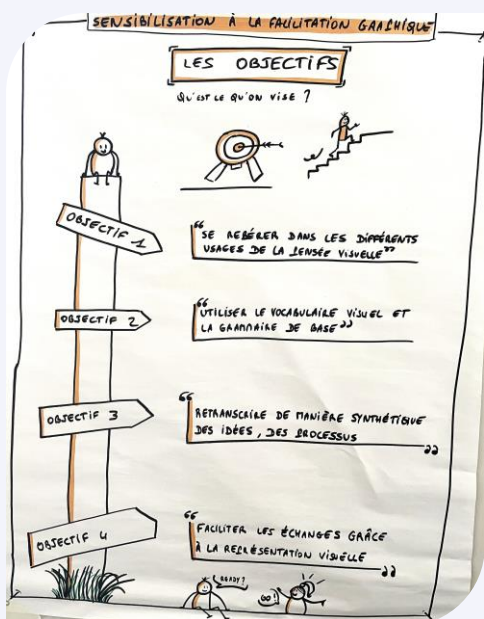 SENSIBILISATION À LA FACILITATION GRAPHIQUE
LES OBJECTIFS
QU'EST LE QU'ON VISE ?
OBJECTIF 1
“SE REPÉRER DANS LES DIFFÉRENTS
USAGES DE LA PENSÉE VISUELLE”
OBJECTIF 2
“UTILISER LE VOCABULAIRE VISUEL ET
LA GRAMMAIRE DE BASE”
OBJECTIF 3
“RETRANSCRIRE DE MANIÈRE SYNTHÉTIQUE
DES IDÉES, DES PROCESSUS”
OBJECTIF 4
“FACILITER LES ÉCHANGES GRÂCE
À LA REPRÉSENTATION VISUELLE”
READY ?